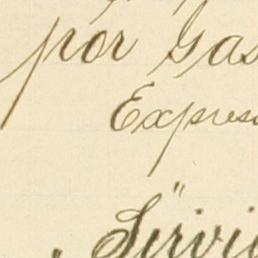 por Gas
Expres
" Servi